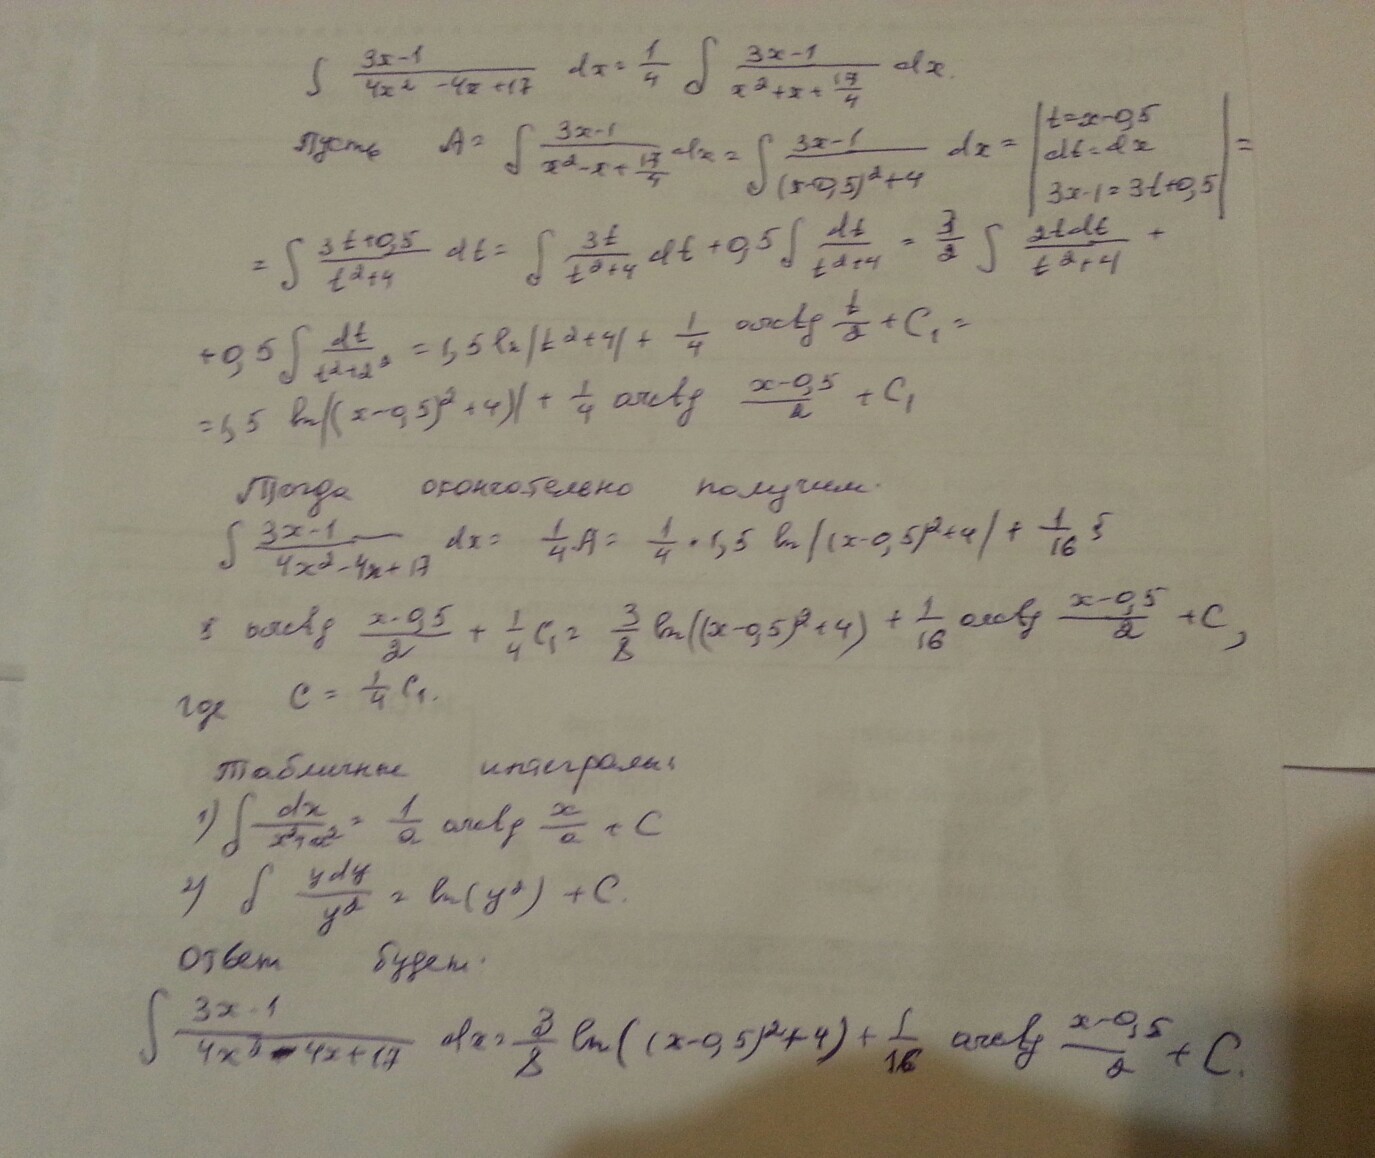 ∫ (3x-1)/(4x² -4x+17) dx = 1/4 ∫ (3x-1)/(x²+x+17/4) dx.
Пусть A = ∫ (3x-1)/(x²-x+17/4) dx = ∫ (3x-1)/((x-0,5)²+4) dx = | t=x-0,5 dt=dx 3x-1=3t+0,5 | =
= ∫ (3t+0,5)/(t²+4) dt = ∫ 3t/(t²+4) dt + 0,5 ∫ dt/(t²+4) = 3/2 ∫ 2tdt/(t²+4) +
+0,5 ∫ dt/(t²+2²) = 1,5 ln|t²+4| + 1/4 arctg t/2 + C₁ =
= 1,5 ln|(x-0,5)²+4)| + 1/4 arctg (x-0,5)/2 + C₁
Тогда окончательно получим.
∫ (3x-1)/(4x²-4x+17) dx = 1/4 A = 1/4 · 1,5 ln|(x-0,5)²+4| + 1/16
arctg (x-0,5)/2 + 1/4 C₁ = 3/8 ln((x-0,5)²+4) + 1/16 arctg (x-0,5)/2 + C,
где C = 1/4 C₁.
Табличные интегралы:
1) ∫ dx/(x²+a²) = 1/a arctg x/a + C
2) ∫ ydy/y² = ln(y²) + C.
Ответ будет.
∫ (3x-1)/(4x²-4x+17) dx = 3/8 ln((x-0,5)²+4) + 1/16 arctg (x-0,5)/2 + C.